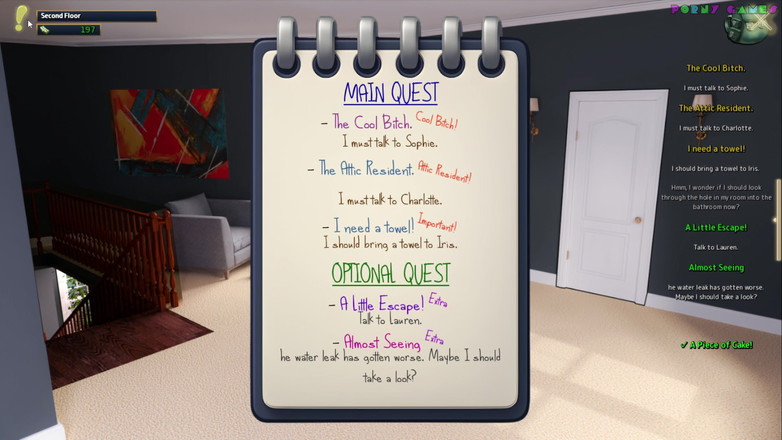 Second Floor
197
PORNY GAMES
MAIN QUEST
- The Cool Bitch. Cool Bitch!
I must talk to Sophie.
- The Attic Resident. Attic Resident!
I must talk to Charlotte.
- I need a towel! Important!
I should bring a towel to Iris.
OPTIONAL QUEST
- A Little Escape! Extra
Talk to Lauren.
- Almost Seeing Extra
he water leak has gotten worse. Maybe I should
take a look?
The Cool Bitch.
I must talk to Sophie.
The Attic Resident.
I must talk to Charlotte.
I need a towel!
I should bring a towel to Iris.
Hmm, I wonder if I should look
through the hole in my room into the
bathroom now?
A Little Escape!
Talk to Lauren.
Almost Seeing
he water leak has gotten worse.
Maybe I should take a look?
✓ A Piece of Cake!